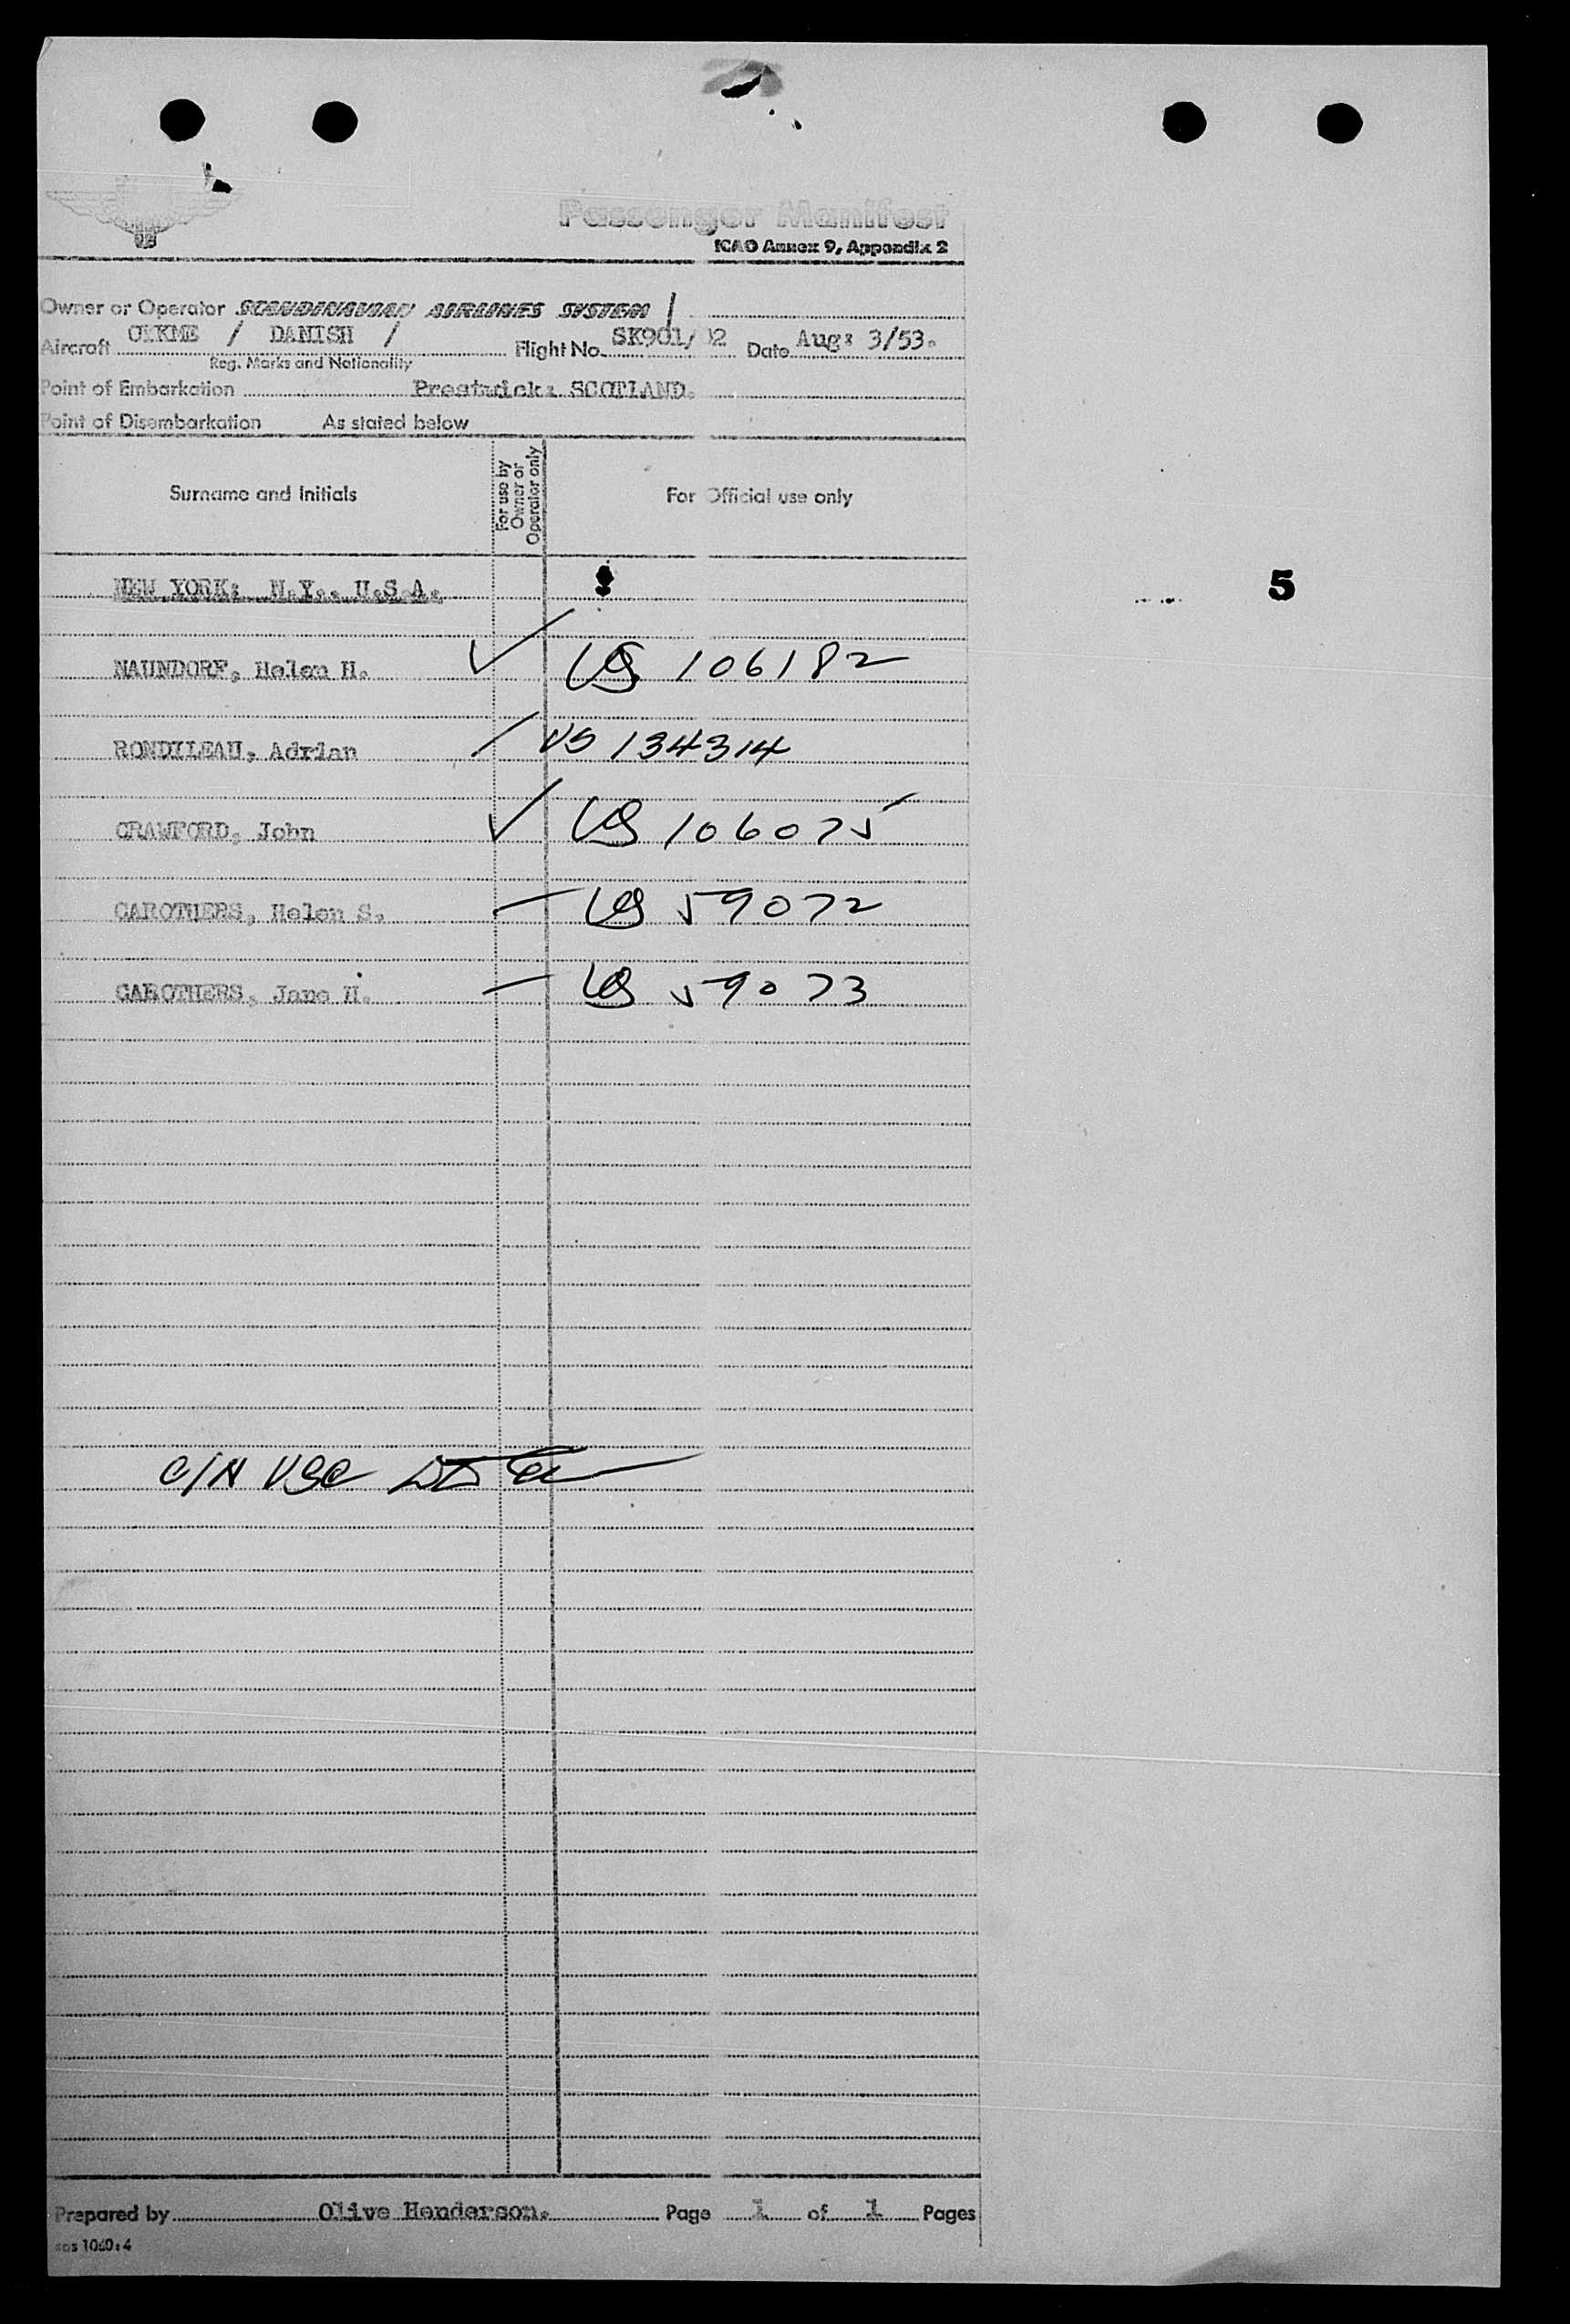 Passenger Manifest
ICAO Annex 9, Appendix 2
Owner or Operator SCANDINAVIAN AIRLINES SYSTEM /
Aircraft OYKME / DANISH / Flight No. SK901/ 02 Date Aug: 3/53.
Reg. Marks and Nationality
Point of Embarkation Prestwick: SCOTLAND.
Point of Disembarkation As stated below
Surname and Initials For use by Owner or Operator only For Official use only
NEW YORK: N.Y.. U.S.A. 5
NAUNDORF, Helen H. ✓ US 106182
RONDILEAU, Adrian / US 134314
CRAWFORD, John ✓ US 106075
CAROTHERS, Helen S. – US 59072
CAROTHERS, Jane H. – US 59073
C/N USC
Prepared by Olive Henderson. Page 1 of 1 Pages
sas 1060:4